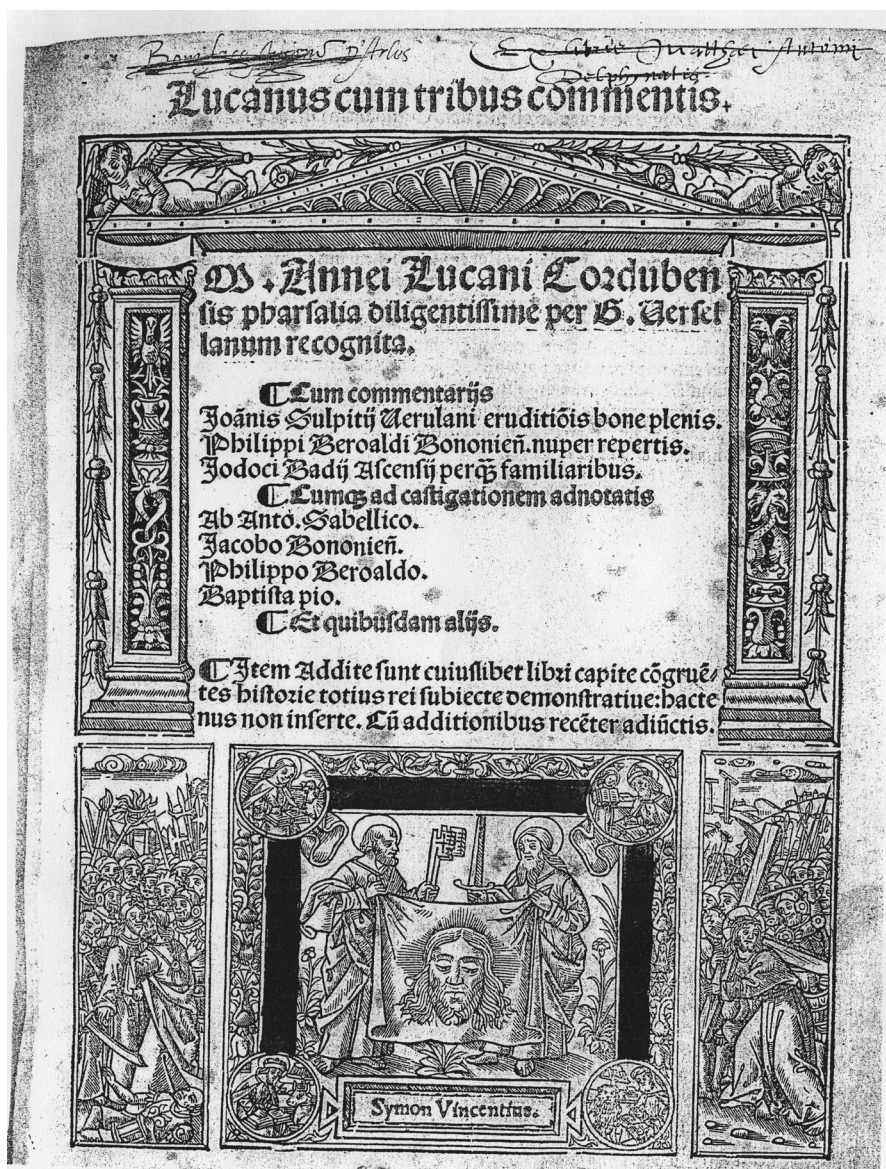 D'Arlos
Matthei Antoni
Delphinatis
Lucanus cum tribus commentis.
M. Annei Lucani Corduben
sis pharsalia diligentissime per G. Versel
lanum recognita.
¶ Cum commentarijs
Joãnis Sulpitij Verulani eruditiõis bone plenis.
Philippi Beroaldi Bononieñ. nuper repertis.
Jodoci Badij Ascensij perq̃ȝ familiaribus.
¶ Cumqȝ ad castigationem adnotatis
Ab Anto. Sabellico.
Jacobo Bononieñ.
Philippo Beroaldo.
Baptista pio.
¶ Et quibusdam alijs.
¶ Item Addite sunt cuiuslibet libri capite cõgruẽ-
tes historie totius rei subiecte demonstratiue: hacte
nus non inserte. Cũ additionibus recẽter adiũctis.
Symon Vincentius.